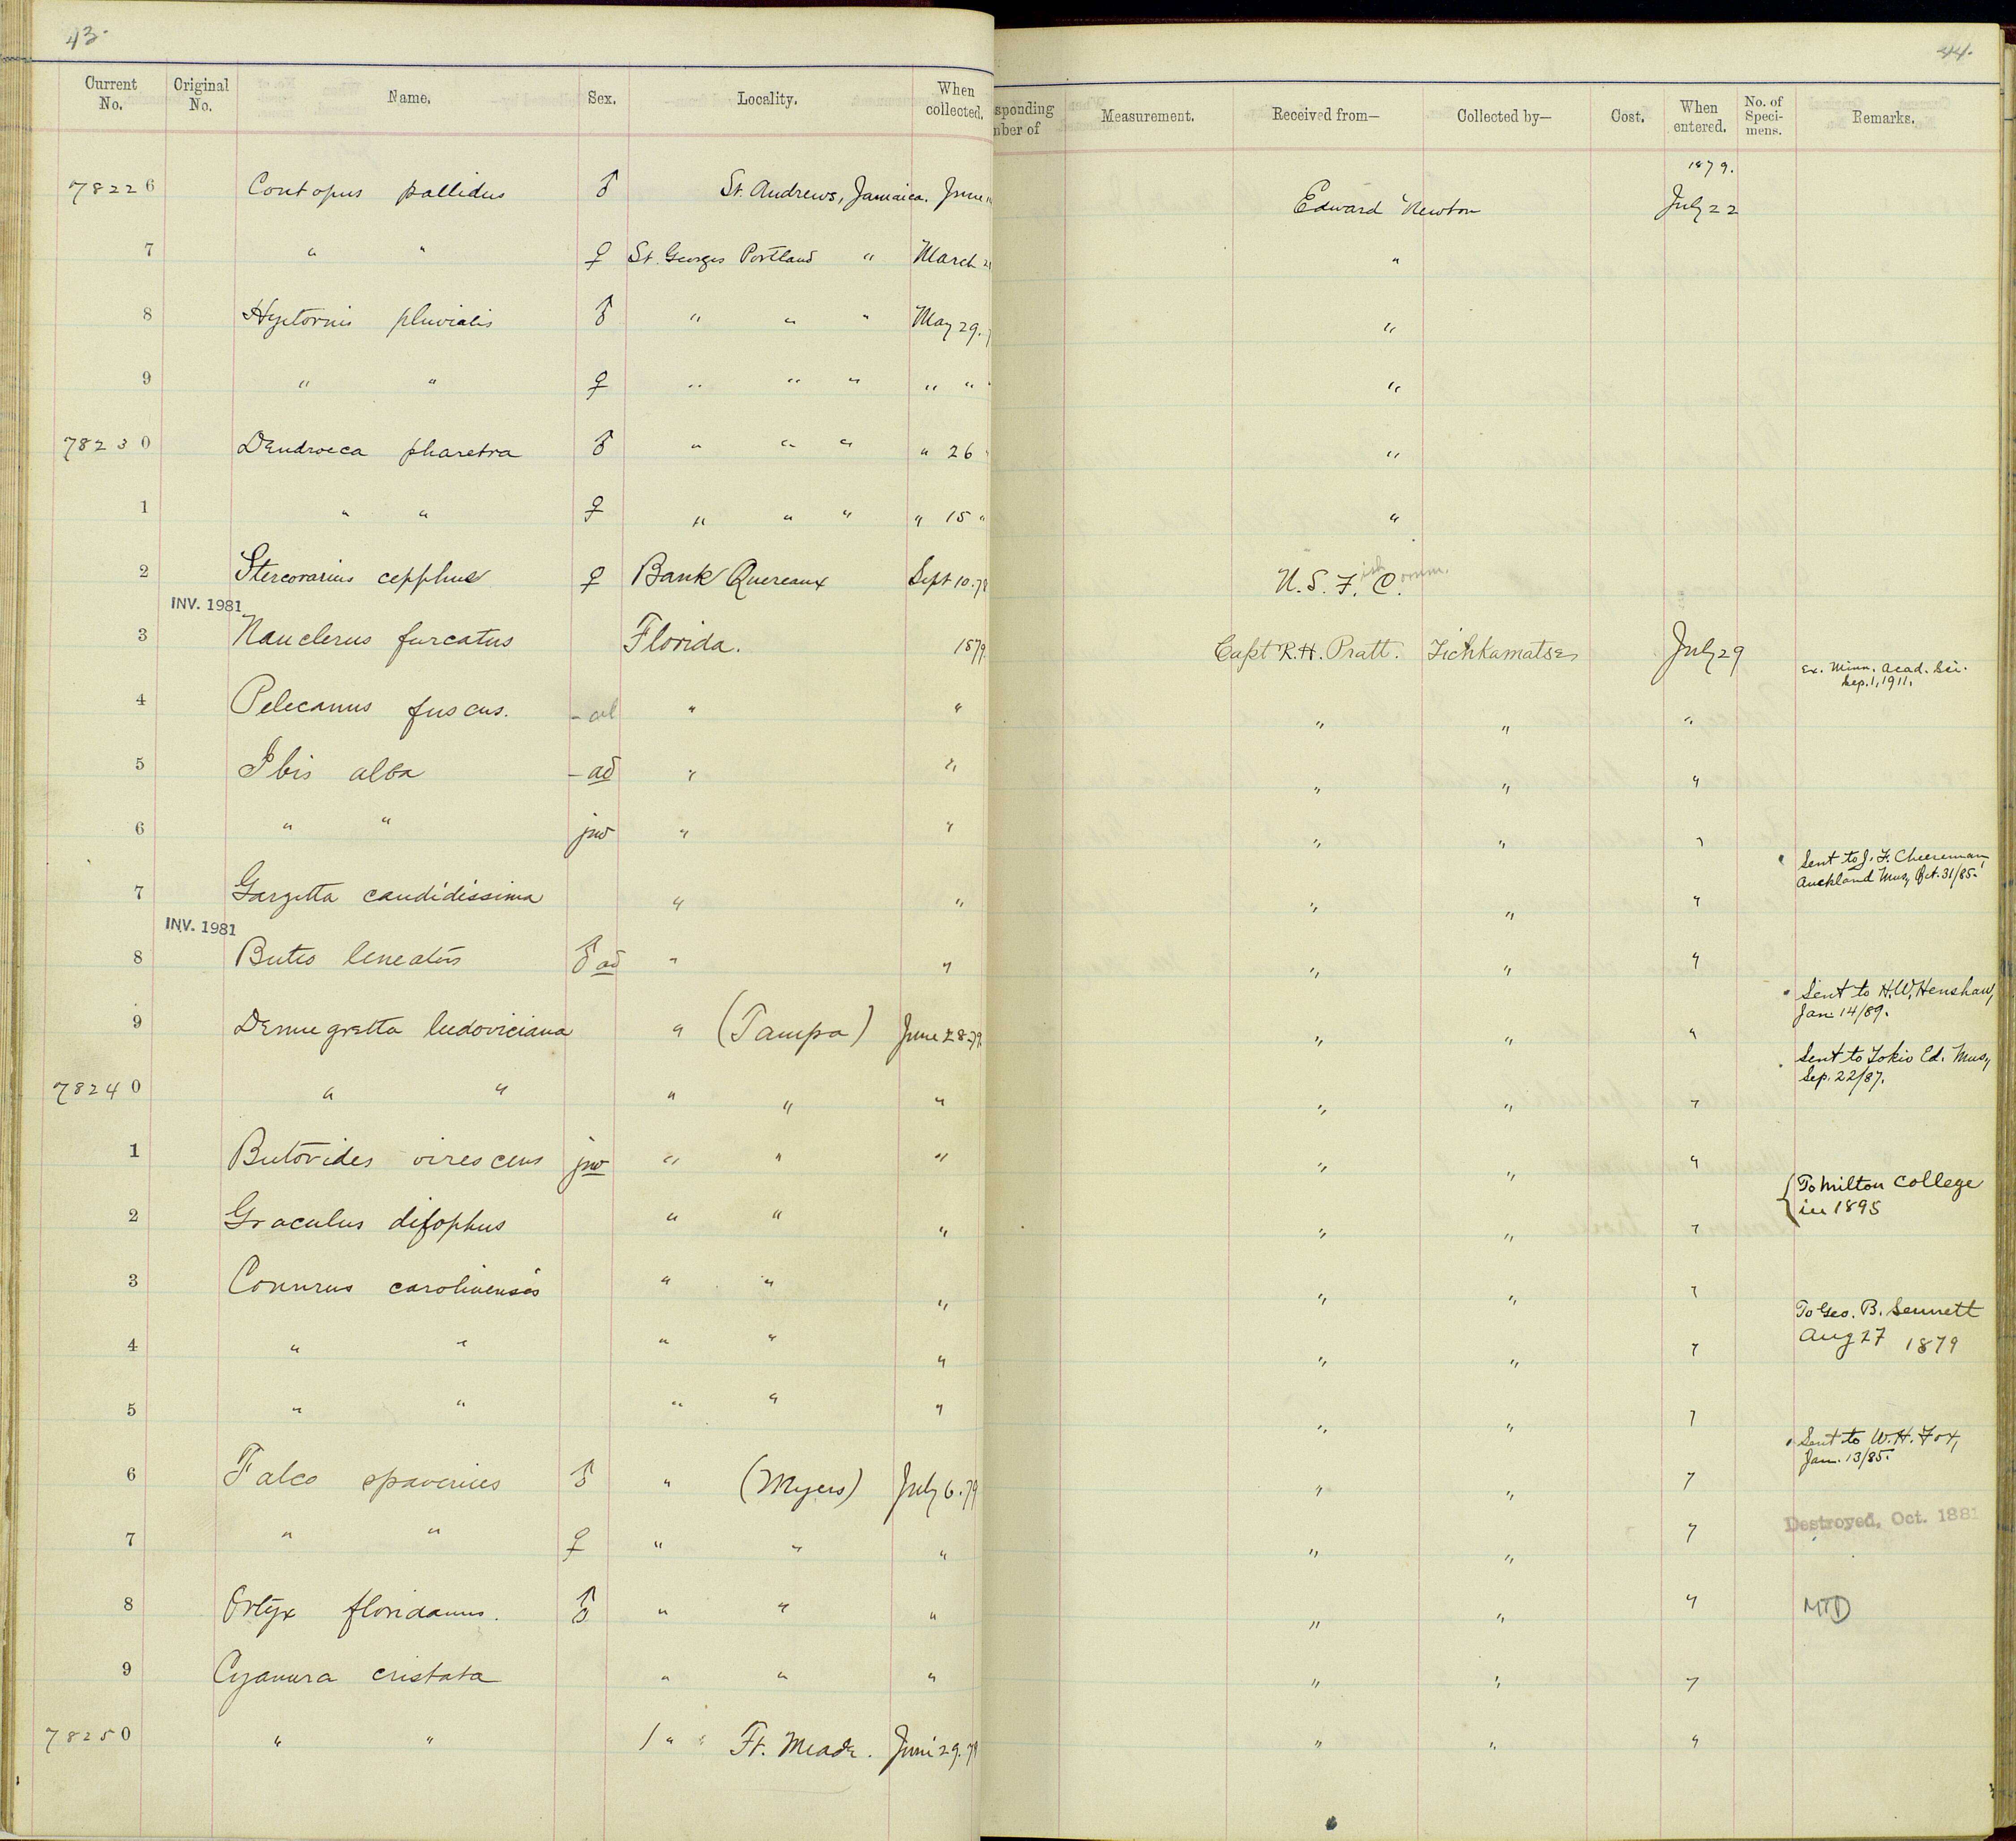 43.
Current No. Original No. Name. Sex. Locality. When collected.
78226 Contopus pallidus ♂ St. Andrews, Jamaica. June
7 " " ♀ St. Georges Portland " March
8 Hyetornis pluvialis ♂ " " " May 29.
9 " " ♀ " " " " "
78230 Dendroeca pharetra ♂ " " " " 26
1 " " ♀ " " " " 15 "
2 Stercorarius cepphus ♀ Bank Quereaux Sept 10.78
INV. 1981
3 Nauclerus furcatus Florida. 1879.
4 Pelecanus fuscus. - ad " "
5 Ibis alba - ad " "
6 " " juv " "
7 Garzetta candidissima " "
INV. 1981
8 Buteo lineatus ♂ ad " "
9 Demiegretta ludoviciana " (Tampa) June 28.79
78240 " " " " "
1 Butorides virescens juv " " "
2 Graculus dilophus " " "
3 Conurus carolinensis " " "
4 " " " " "
5 " " " " "
6 Falco sparverius ♂ " (Myers) July 6.79
7 " " ♀ " " "
8 Ortyx floridanus. ♂ " " "
9 Cyanura cristata " " "
78250 " " " " Ft. Meade. June 29.79
44.
sponding nber of Measurement. Received from— Collected by— Cost. When entered. No. of Specimens. Remarks.
1879.
Edward Newton July 22
"
"
"
"
"
U. S. Fish Comm.
Capt R. H. Pratt. Tichkamatse July 29 Ex. Minn. Acad. Sci.
Sep. 1, 1911.
" " "
" " "
" " "
Sent to J. F. Cheeseman,
Auckland Mus, Oct. 31/85.
" " "
" " "
Sent to H. W. Henshaw,
Jan. 14/89.
" " "
Sent to Tokio Ed. Mus,
Sep. 22/87.
" " "
" " "
{ To Milton College
in 1895
" " "
" " "
To Geo. B. Sennett
Aug 27 1879
" " "
" " "
Sent to W. H. Fox,
Jan. 13/85.
" " "
" " " Destroyed, Oct. 1881
" " " MTD
" " "
" " "